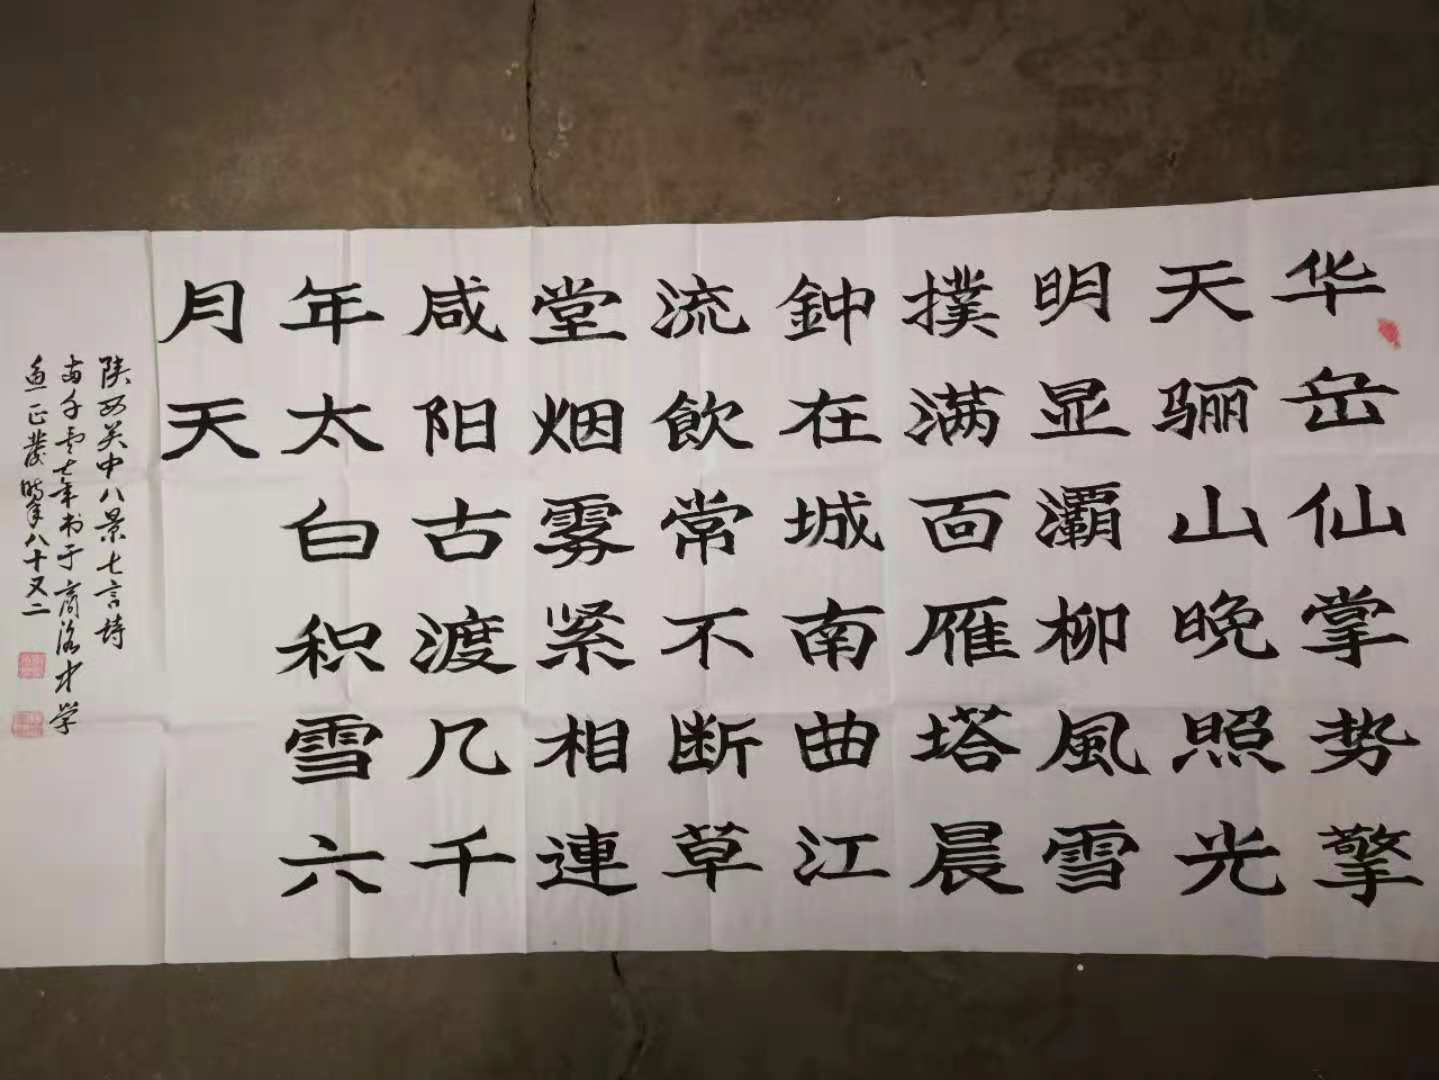 华岳仙掌势擎
天骊山晚照光
明显灞柳風雪
撲满面雁塔晨
鈡在城南曲江
流飲常不断草
堂烟雾紧相連
咸阳古渡几千
年太白积雪六
月天
陕西关中八景七言詩
千零七年书于商洛中学
正發時年八十又二